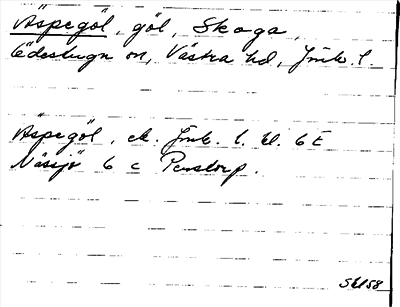 Äspegöl, göl, Skoga,
Ödestugu sn, Västra hd, Jönk. l.
Äspegöl, ek. Jönk. l. bl. 6 E
Nässjö 6 c Penstorp.
SEl 58